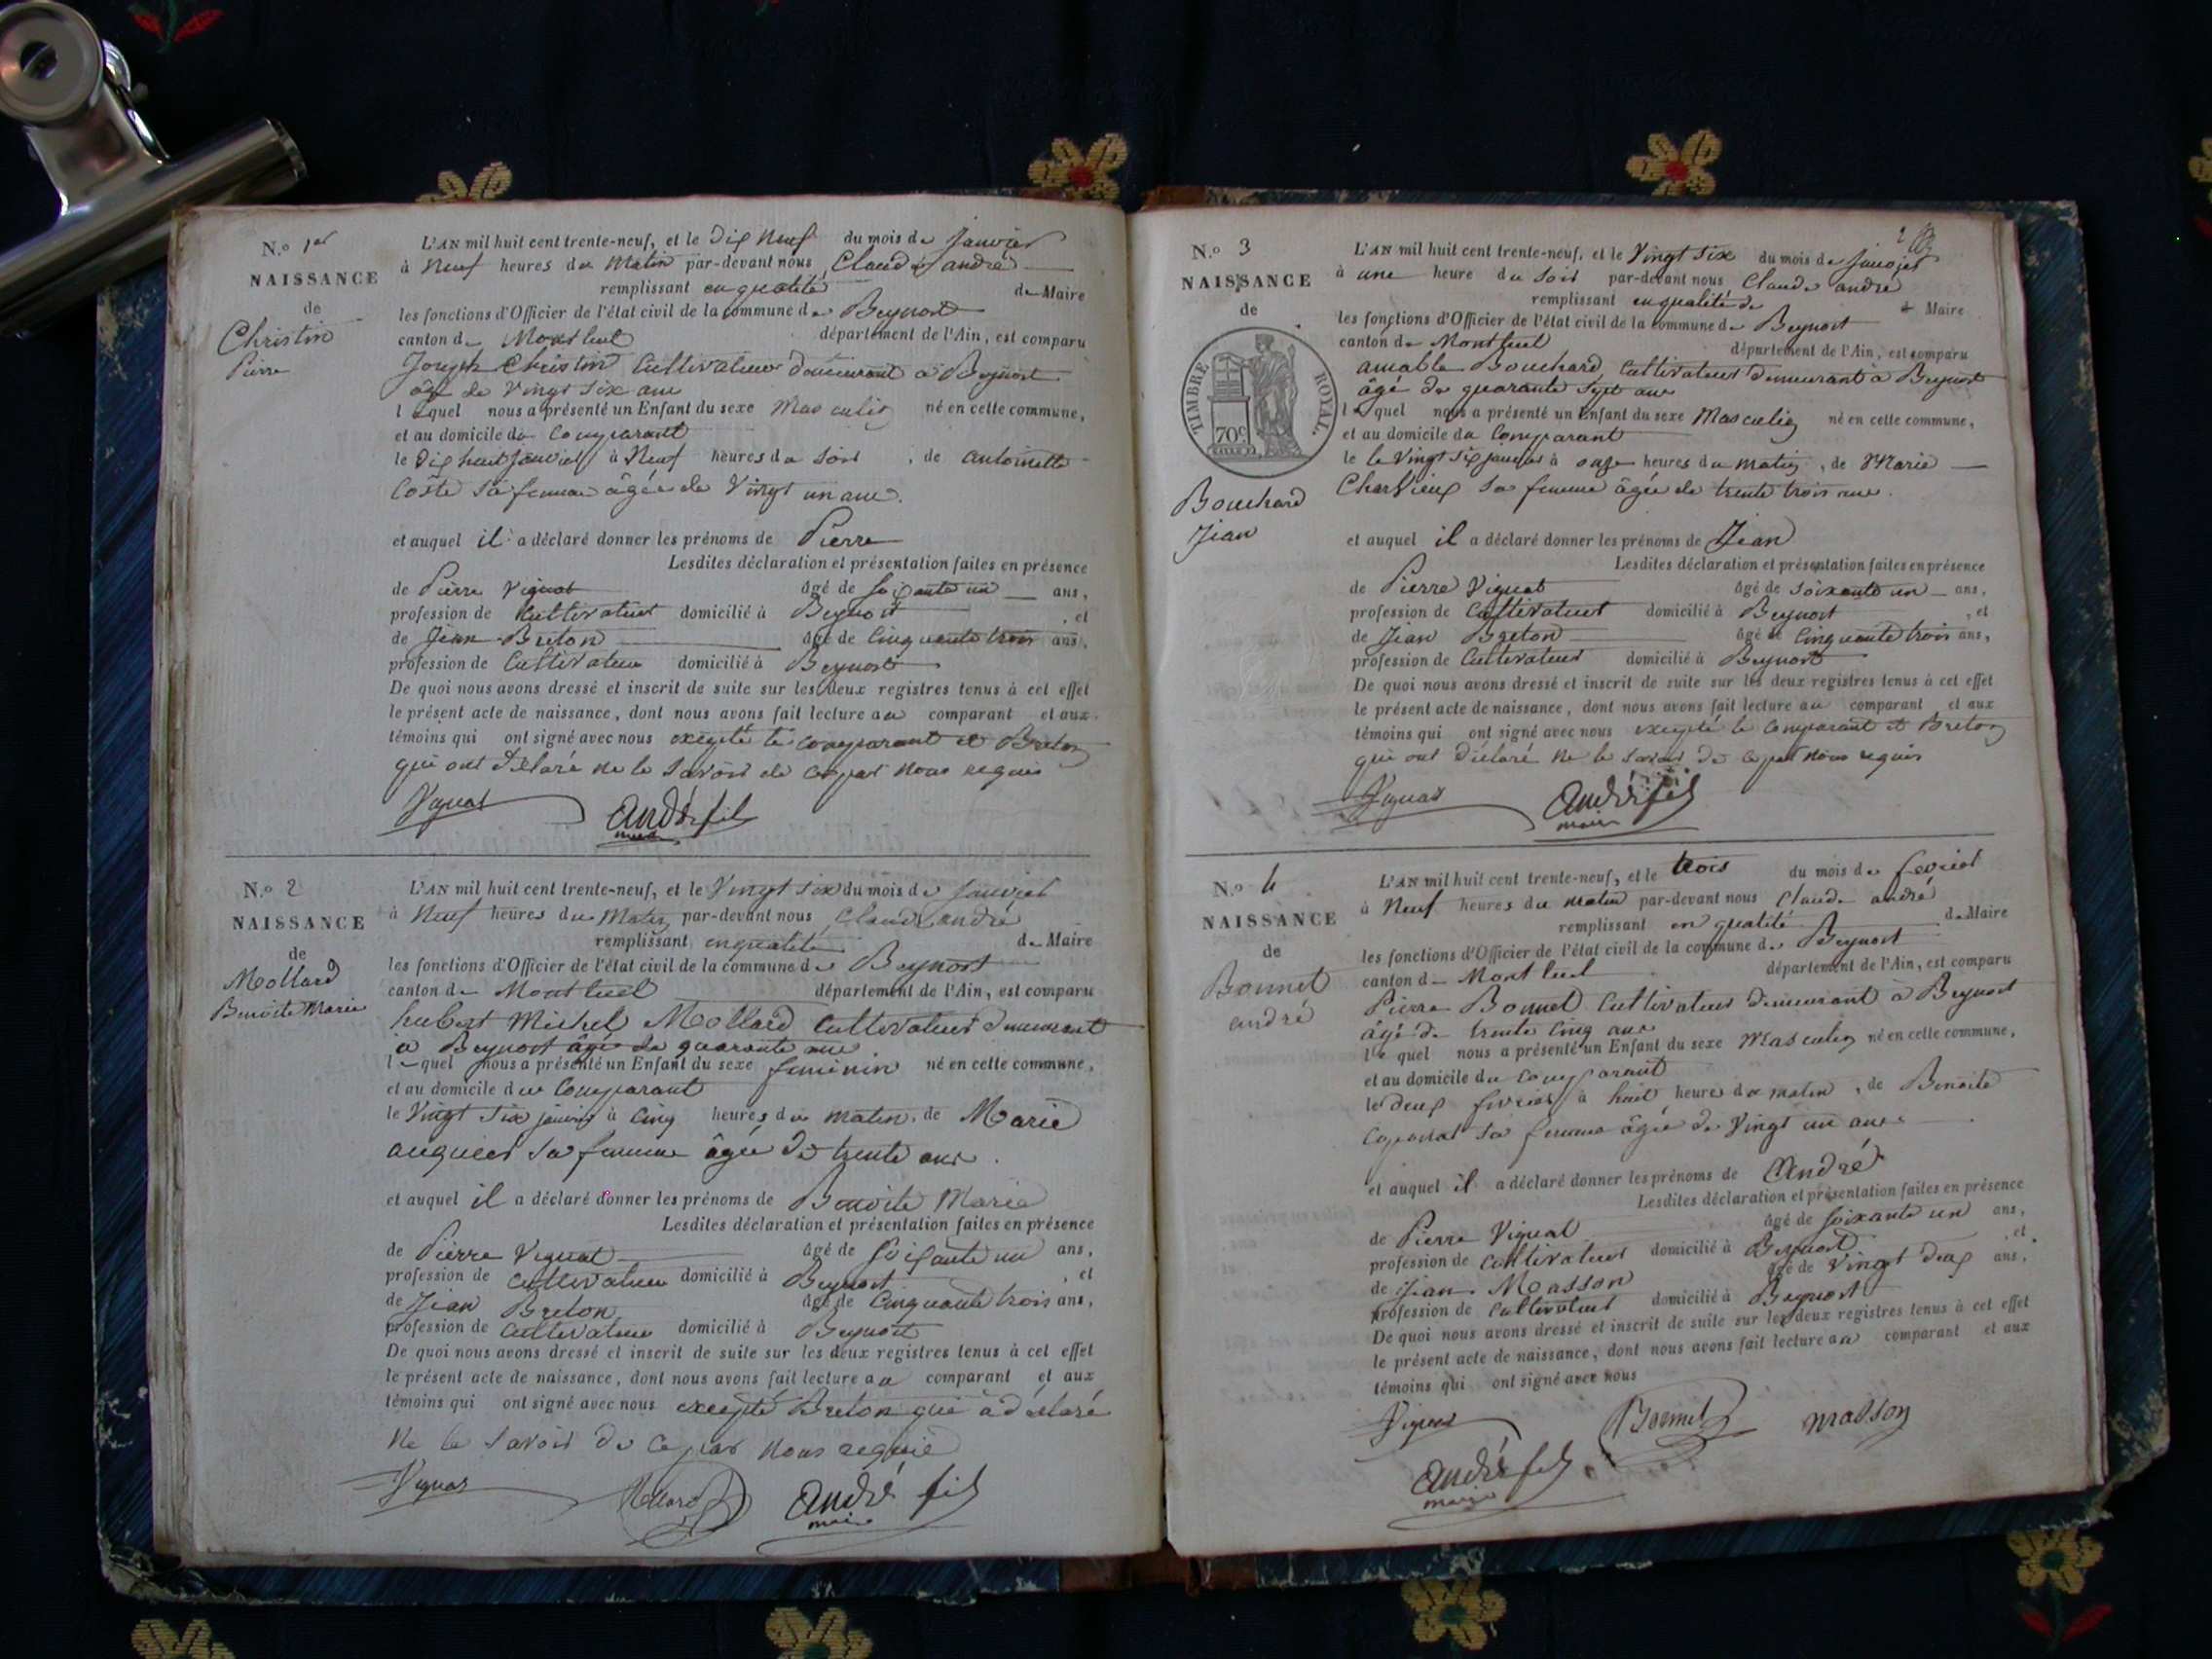 N.o 1er
NAISSANCE
de
Christin
Pierre
L'AN mil huit cent trente-neuf, et le Dix neuf du mois de Janvier
à Neuf heures du Matin par-devant nous Claude andré
remplissant en qualité de Maire
les fonctions d'Officier de l'état civil de la commune de Beynost
canton de Montluel département de l'Ain, est comparu
Joseph Christin Cultivateur demeurant à Beynost
âgé de Vingt six ans
lequel nous a présenté un Enfant du sexe Masculin né en cette commune,
et au domicile du Comparant
le Dix huit Janvier à Neuf heures du Soir, de antoinette
Coste sa femme âgée de Vingt un ans.
et auquel il a déclaré donner les prénoms de Pierre
Lesdites déclaration et présentation faites en présence
de Pierre Vignat âgé de soixante un ans,
profession de Cultivateur domicilié à Beynost, et
de Jean Breton âgé de Cinquante trois ans,
profession de Cultivateur domicilié à Beynost
De quoi nous avons dressé et inscrit de suite sur les deux registres tenus à cet effet
le présent acte de naissance, dont nous avons fait lecture au comparant et aux
témoins qui ont signé avec nous excepté le comparant et Breton
qui ont déclaré ne le savoir de ce par nous requis
Vignat André fils
maire
N.o 2
NAISSANCE
de
Mollard
Benoite Marie
L'AN mil huit cent trente-neuf, et le Vingt six du mois de Janvier
à Neuf heures du Matin par-devant nous Claude andré
remplissant en qualité de Maire
les fonctions d'Officier de l'état civil de la commune de Beynost
canton de Montluel département de l'Ain, est comparu
hubert Michel Mollard Cultivateur demeurant
a Beynost âgé de quarante ans
lequel nous a présenté un Enfant du sexe feminin né en cette commune,
et au domicile du Comparant
le Vingt six janvier à cinq heures du matin, de Marie
sa femme âgée de trente ans.
et auquel il a déclaré donner les prénoms de Benoite Marie
Lesdites déclaration et présentation faites en présence
de Pierre Vignat âgé de soixante un ans,
profession de cultivateur domicilié à Beynost, et
de Jean Breton âgé de Cinquante trois ans,
profession de Cultivateur domicilié à Beynost
De quoi nous avons dressé et inscrit de suite sur les deux registres tenus à cet effet
le présent acte de naissance, dont nous avons fait lecture au comparant et aux
témoins qui ont signé avec nous excepté Breton qui a déclaré
Ne le savoir de ce par nous requis
Vignat Mollard André fils
maire
2
N.o 3
NAISSANCE
de
TIMBRE ROYAL.
70c
Bouchard
Jean
L'AN mil huit cent trente-neuf, et le Vingt six du mois de Janvier
à une heure du soir par-devant nous Claude andré
remplissant en qualité de Maire
les fonctions d'Officier de l'état civil de la commune de Beynost
canton de Montluel département de l'Ain, est comparu
amable Bouchard Cultivateur demeurant à Beynost
âgé de quarante sept ans
lequel nous a présenté un Enfant du sexe Masculin né en cette commune,
et au domicile du Comparant
le le Vingt six janvier à onze heures du matin, de Marie
Charvieux sa femme âgée de trente trois ans.
et auquel il a déclaré donner les prénoms de Jean
Lesdites déclaration et présentation faites en présence
de Pierre Vignat âgé de soixante un ans,
profession de Cultivateur domicilié à Beynost, et
de Jean Breton âgé de Cinquante trois ans,
profession de Cultivateur domicilié à Beynost
De quoi nous avons dressé et inscrit de suite sur les deux registres tenus à cet effet
le présent acte de naissance, dont nous avons fait lecture au comparant et aux
témoins qui ont signé avec nous excepté le Comparant et Breton
qui ont déclaré Ne le savoir de ce par nous requis
Vignat André fils
maire
N.o 4
NAISSANCE
de
Bonnet
andré
L'AN mil huit cent trente-neuf, et le trois du mois de fevrier
à Neuf heures du matin par-devant nous Claude andré
remplissant en qualité de Maire
les fonctions d'Officier de l'état civil de la commune de Beynost
canton de Montluel département de l'Ain, est comparu
Pierre Bonnet Cultivateur demeurant à Beynost
âgé de trente cinq ans
lequel nous a présenté un Enfant du sexe Masculin né en cette commune,
et au domicile du comparant
le deux fevrier à huit heures du matin, de Benoite
sa femme âgée de Vingt un ans
et auquel il a déclaré donner les prénoms de André
Lesdites déclaration et présentation faites en présence
de Pierre Vignat âgé de soixante un ans,
profession de Cultivateur domicilié à Beynost, et
de Jean Masson âgé de Vingt deux ans,
profession de Cultivateur domicilié à Beynost
De quoi nous avons dressé et inscrit de suite sur les deux registres tenus à cet effet
le présent acte de naissance, dont nous avons fait lecture au comparant et aux
témoins qui ont signé avec nous
Vignat Bonnet masson
André fils
maire